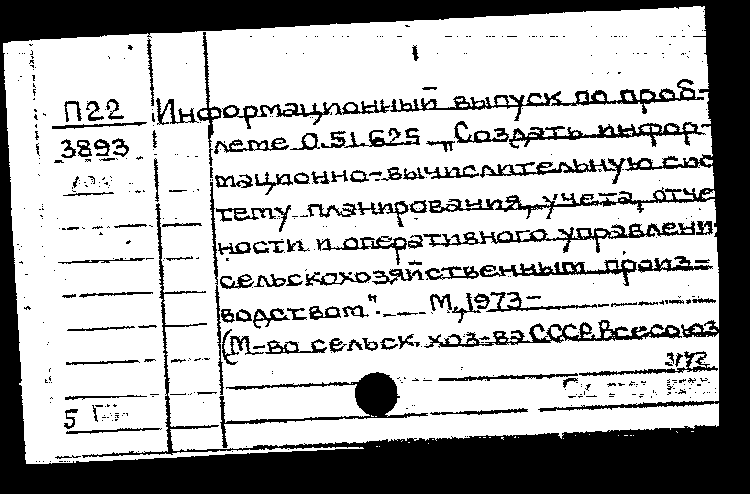 П22 Информационный выпуск по проб-
3893 леме 0.51.625 „Создать инфор-
мационно-вычислительную сис
тему планирования, учета, отче
ности и оперативного управлени
сельскохозяйственным произ-
водством". М., 1973-
(М-во сельск. хоз-ва СССР. Всесоюз
3172
5